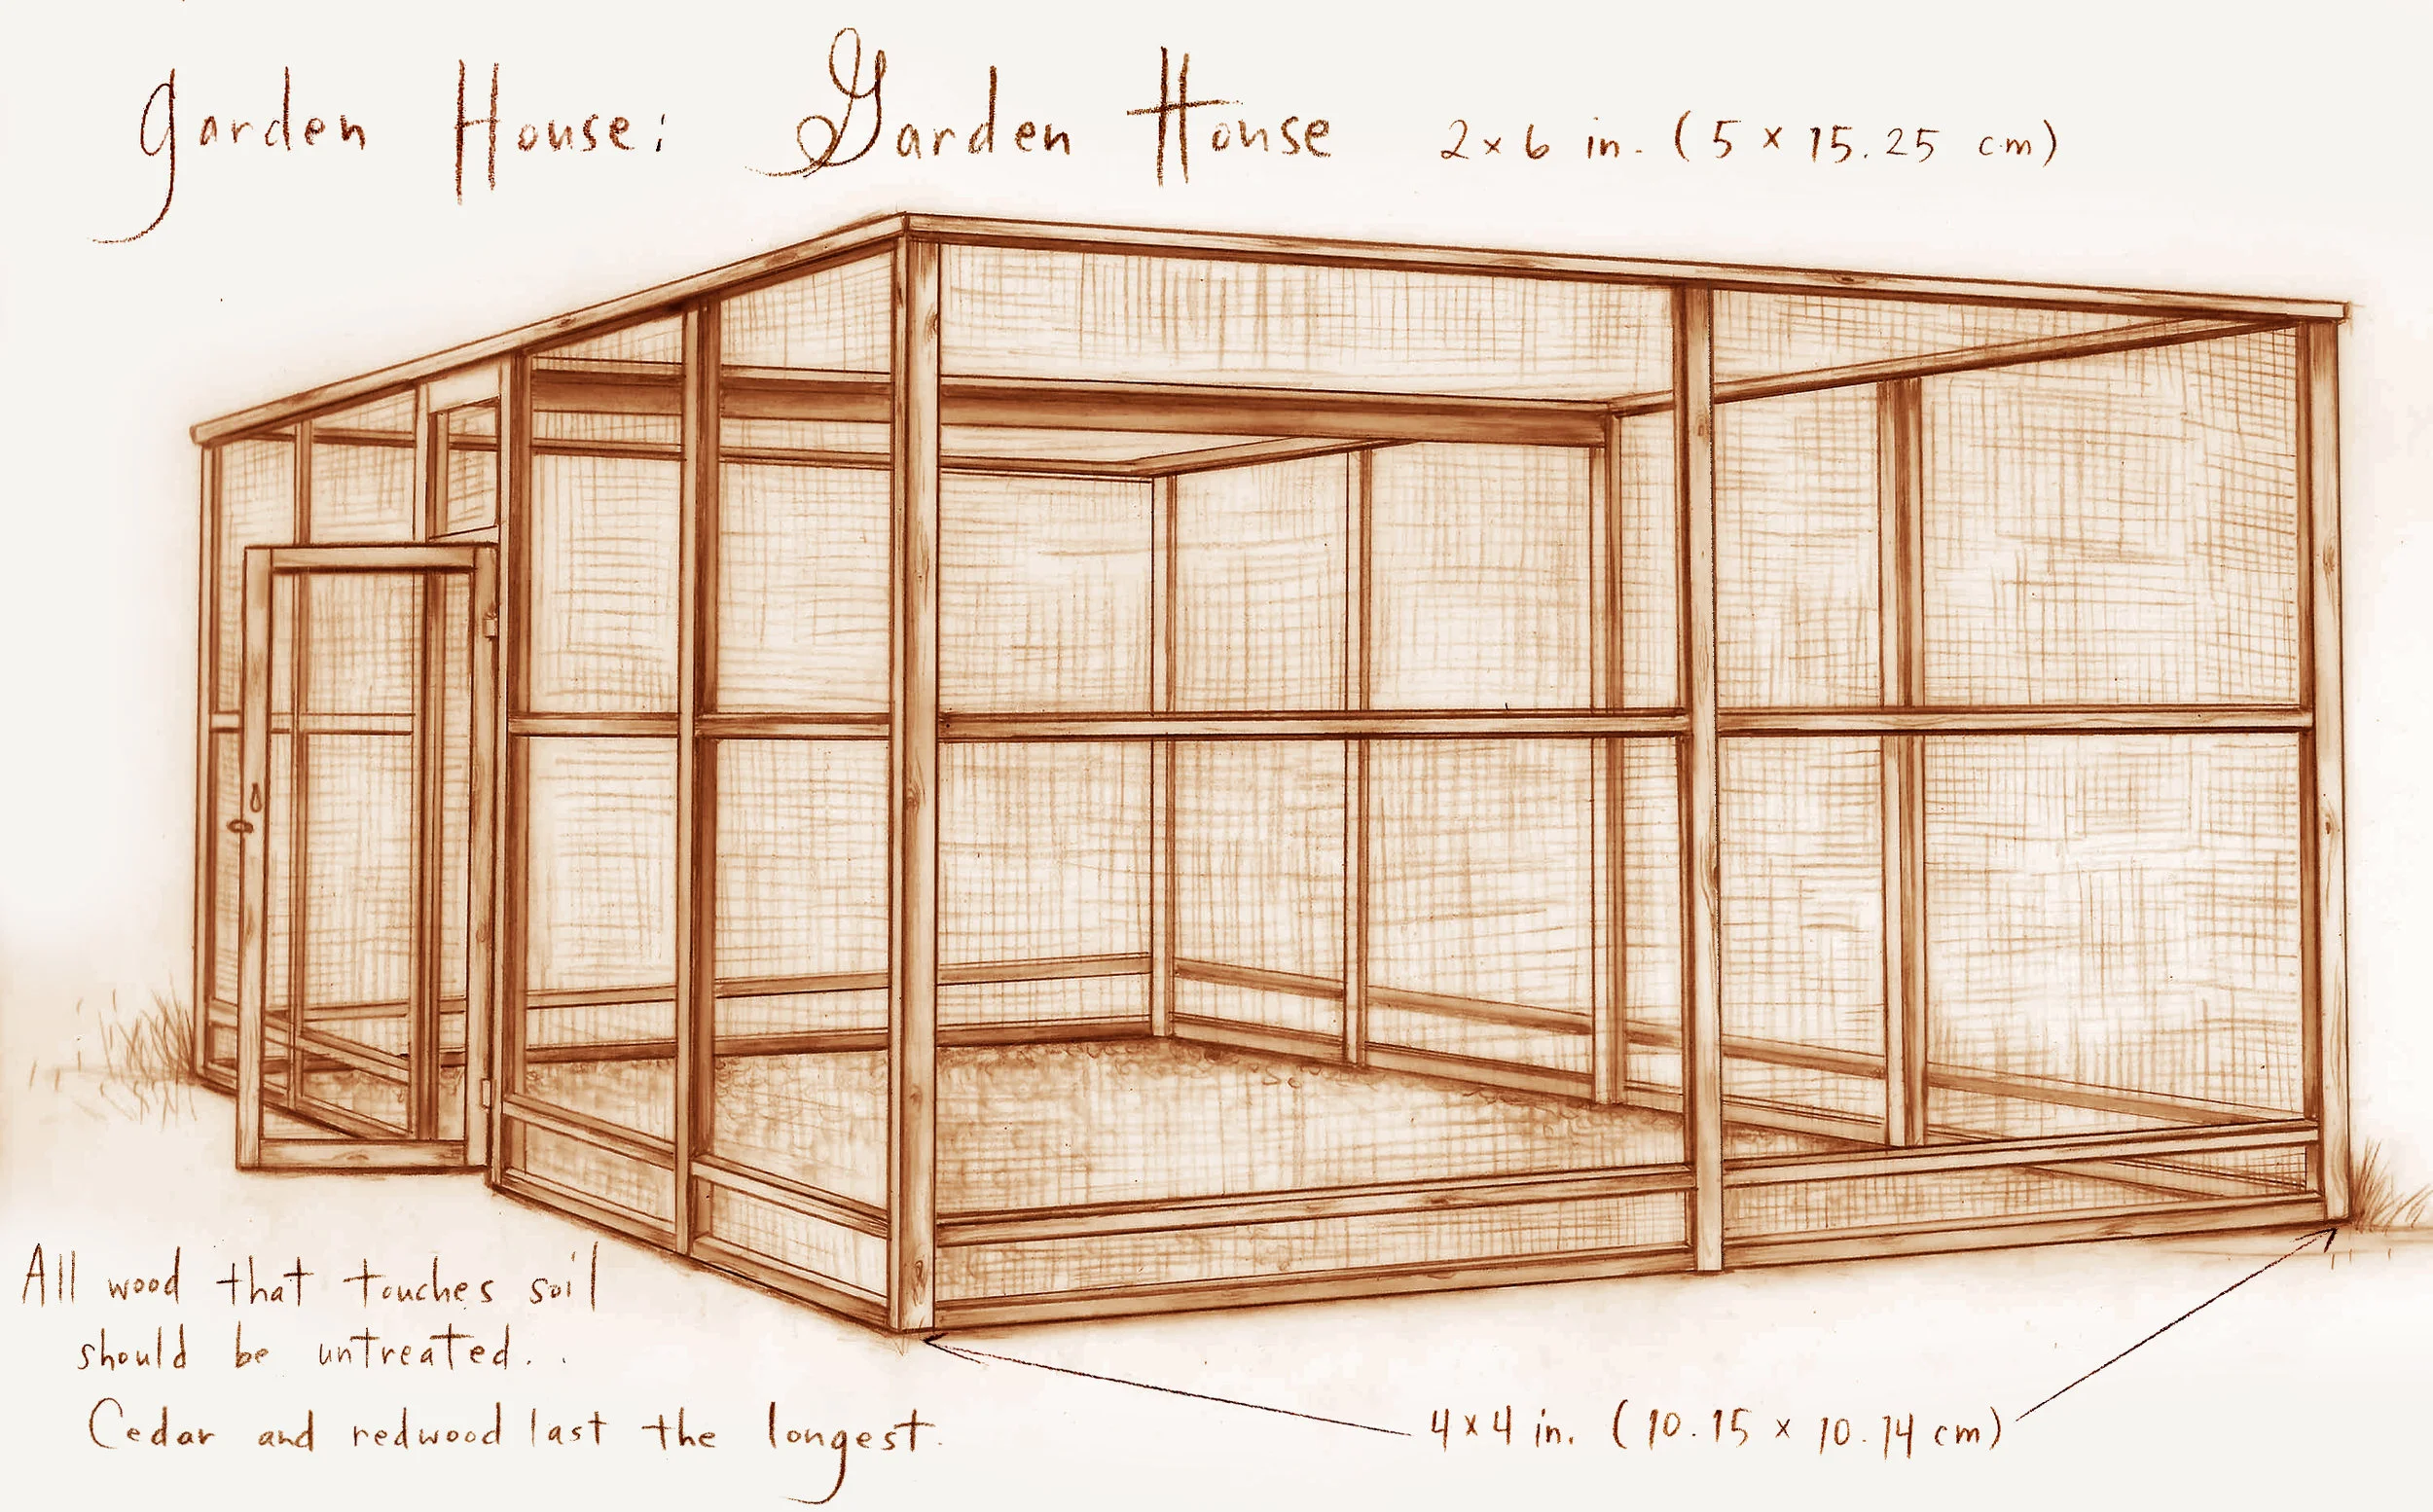 garden House: Garden House 2x6 in. (5 x 15.25 cm)
All wood that touches soil
should be untreated. .
Cedar and redwood last the longest.
4x4 in. (10.15 x 10.14 cm)